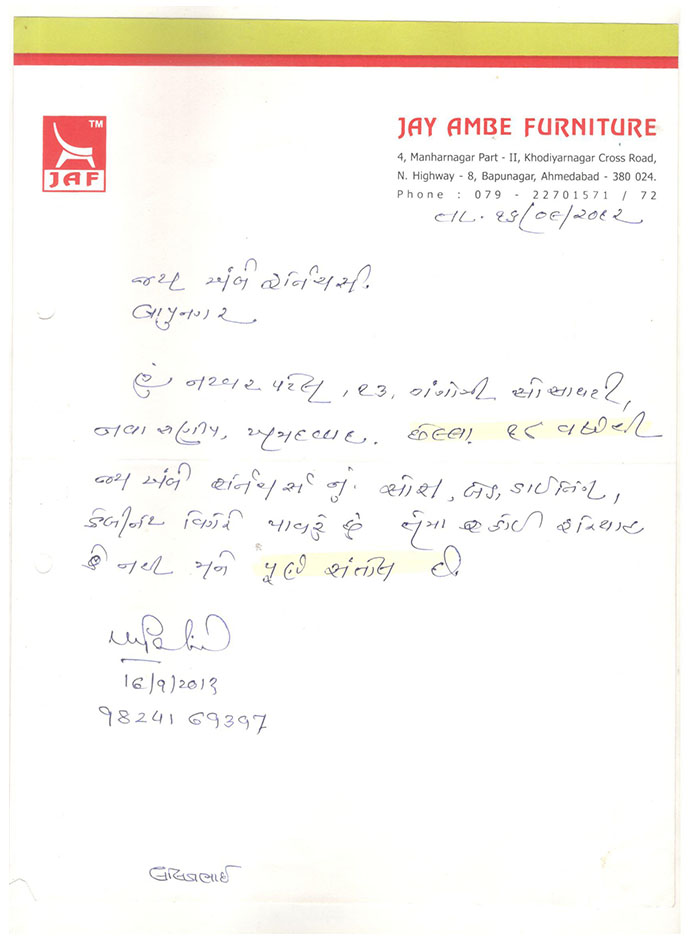 TM
JAF
JAY AMBE FURNITURE
4, Manharnagar Part - II, Khodiyarnagar Cross Road,
N. Highway - 8, Bapunagar, Ahmedabad - 380 024.
Phone : 079 - 22701571 / 72
તા. ૧૬/૦૯/૨૦૧૨
જય અંબે ફર્નિચર્સ.
બાપુનગર
હું નટવર પટેલ, ૧૩, ગંગોત્રી સોસાયટી,
નવા નરોડા, અમદાવાદ. છેલ્લા ૧૮ વર્ષોથી
જય અંબે ફર્નિચર્સ નું સોફા, બેડ, ડાઈનિંગ,
કેબીનેટ વિગેરે વાપરું છું તેમાં કોઈ ફરિયાદ
નથી મને પૂર્ણ સંતોષ છે.
16/9/2013
98241 69397